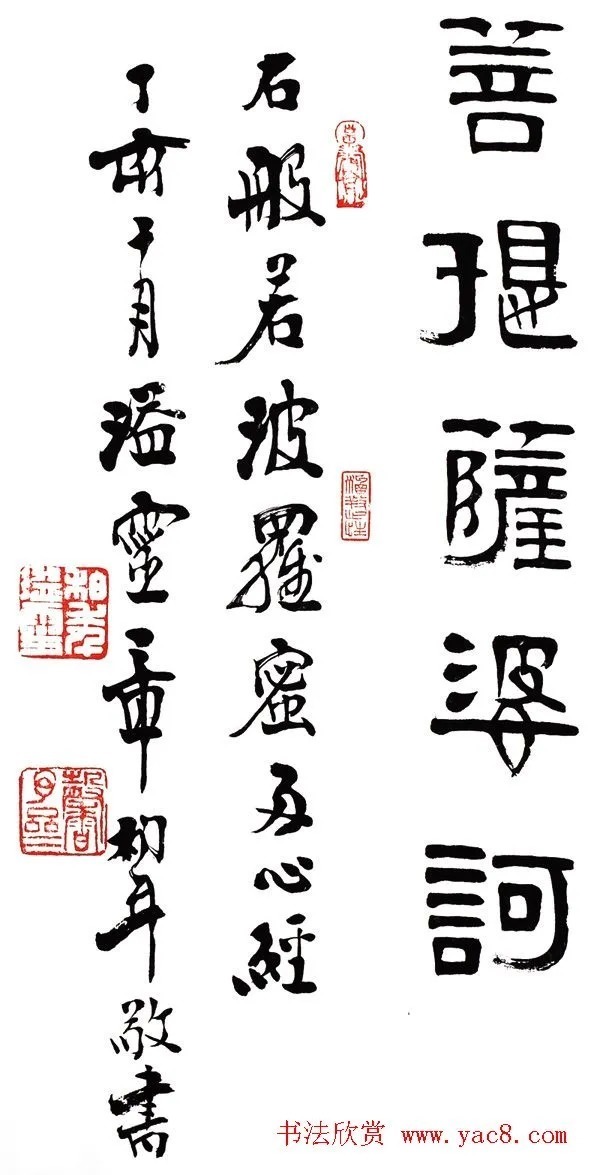 菩提薩婆訶
右般若波羅蜜多心經
丁亥十月靈章年敬書
书法欣赏 www.yac8.com